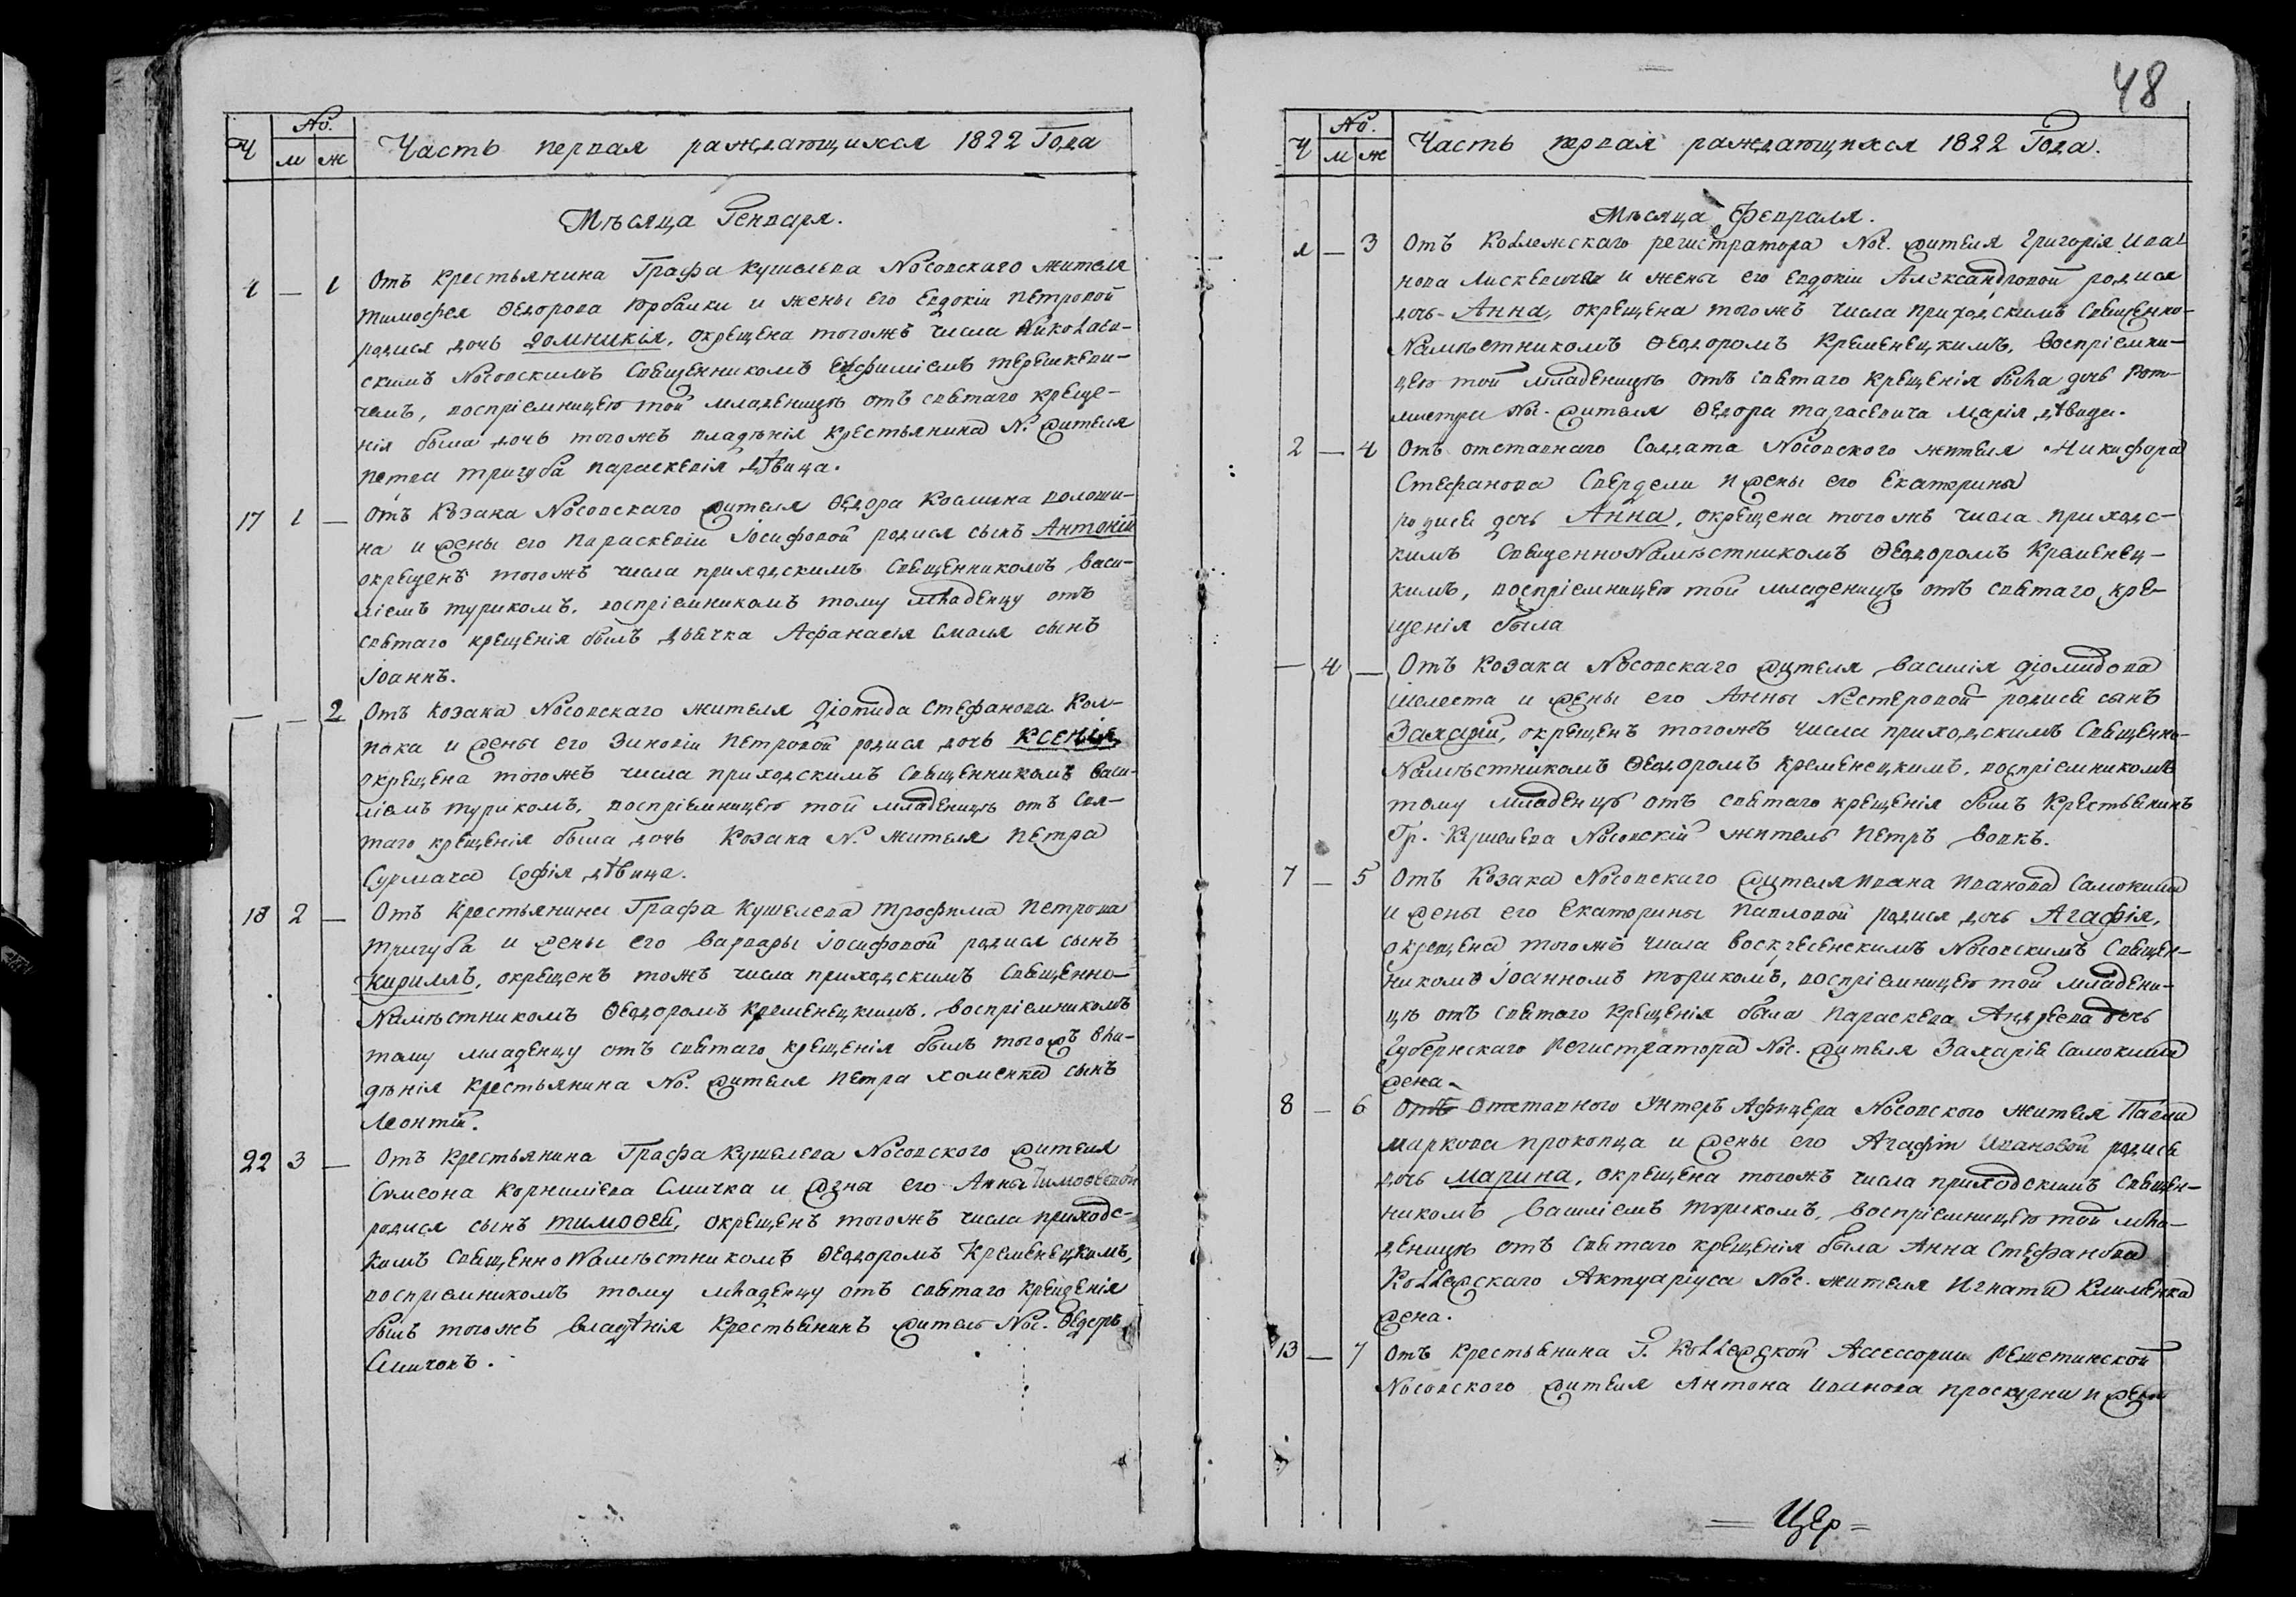 48
Ч № м ж Часть первая раждающихся 1822 Года
Мѣсяца Генваря.
4 — 1 Отъ Крестьянина Графа Кушелева Носовскаго жителя
Тимофея Ѳедорова Юрбалки и жены его Евдокіи Петровой
родися дочь Домникія, окрещена тогожъ числа Николаев-
скимъ Носовскимъ Священникомъ Евфиміемъ Терешкеви-
чемъ, воспріемницею той младеницѣ отъ святаго креще-
нія была дочь тогожъ владѣнія крестьянина N. жителя
Петра Тригуба Параскевія дѣвица.
17 1 — Отъ Козака Носовскаго жителя Ѳедора Космина Волоши-
на и жены его Параскевіи Іосифовой родися сынъ Антоній
окрещенъ тогожъ числа приходскимъ Священникомъ Васи-
ліемъ Туриком‌ъ, воспріемникомъ тому младенцу отъ
святаго крещенія былъ дьячка Афанасія Смаля сынъ
Іоаннъ.
— — 2 Отъ Козака Носовскаго жителя Діомида Стефанова Кол-
пака и жены его Зиновіи Петровой родися дочь Ксенія
окрещена тогожъ числа приходскимъ Священникомъ Васи-
ліемъ Турикомъ, воспріемницею той младеницѣ отъ Свя-
таго крещенія была дочь Козака N. жителя Петра
Сурмача Софія дѣвица.
18 2 — Отъ Крестьянина Графа Кушелева Трофима Петрова
Тригуба и жены его Варвары Іосифовой родися сынъ
Кириллъ, окрещенъ тожъ числа приходскимъ Священно-
Намѣстникомъ Ѳеодоромъ Кременецкимъ, воспріемникомъ
тому младенцу отъ святаго крещенія былъ тогожъ вла-
дѣнія крестьянина No. жителя Петра Хоменка сынъ
Леонтій.
22 3 — Отъ Крестьянина Графа Кушелева Носовского жителя
Симеона Корниліева Смичка и жены его Анны Тимоѳеевой
родися сынъ Тимоѳей, окрещенъ тогожъ числа приходс-
кимъ Священно Намѣстникомъ Ѳеодоромъ Кременецкимъ,
воспріемникомъ тому младенцу отъ святаго крещенія
былъ тогожъ владѣнія Крестьянинъ житель Нос. Ѳедоръ
Смичокъ.
Ч № м ж Часть первая раждающихся 1822 Года.
Мѣсяца Февраля.
1 — 3 Отъ Коллежскаго регистратора Нос. жителя Григорія Ива-
нова Лискевича и жены его Евдокіи Александровой родися
дочь Анна, окрещена тогожъ числа приходскимъ Священно-
Намѣстникомъ Ѳеодоромъ Кременецкимъ, воспріемни-
цею той младеницѣ отъ святаго крещенія была дочь Рот-
мистра Нос. жителя Ѳедора Тарасевича Марія дѣвица.
2 — 4 Отъ отставнаго Солдата Носовского жителя Никифора
Стефанова Свердели и жены его Екатерины
родися дочь Анна, окрещена тогожъ числа приходс-
кимъ Священно Намѣстникомъ Ѳеодоромъ Кременец-
кимъ, воспріемницею той младеницѣ отъ святаго кре-
щенія была
— 4 — Отъ Козака Носовскаго жителя Василія Діомидова
Шелеста и жены его Анны Нестеровой родися сынъ
Захарій, окрещенъ тогожъ числа приходскимъ Священно-
Намѣстникомъ Ѳеодоромъ Кременецкимъ, воспріемникомъ
тому младенцу отъ святаго крещенія былъ Крестьянинъ
Гр. Кушелева Носовскій житель Петръ Вовкъ.
7 — 5 Отъ Козака Носовскаго жителя Ивана Иванова Самокиша
и жены его Екатерины Павловой родися дочь Агафія,
окрещена тогожъ числа Воскресенскимъ Носовскимъ Священ-
никомъ Іоанномъ Турикомъ, воспріемницею той младени-
цѣ отъ святаго крещенія была Параскева Андреева дочь
Губернскаго Регистратора Нос. жителя Захарія Самокиша
жена.
8 — 6 Отъ Отставного Унтеръ Афицера Носовского жителя Павла
Маркова Прокопца и жены его Агафіи Ивановой родися
дочь Марина, окрещена тогожъ числа приходскимъ Священ-
никомъ Василіемъ Турикомъ, воспріемницею той мла-
деницѣ отъ святаго крещенія была Анна Стефанова
Коллежскаго Актуаріуса Нос. жителя Игната Клименка
жена.
13 — 7 Отъ Крестьянина Г. Коллежской Ассессорши Решетинской
Носовского жителя Антона Иванова Проскурни и жены
= Цер =